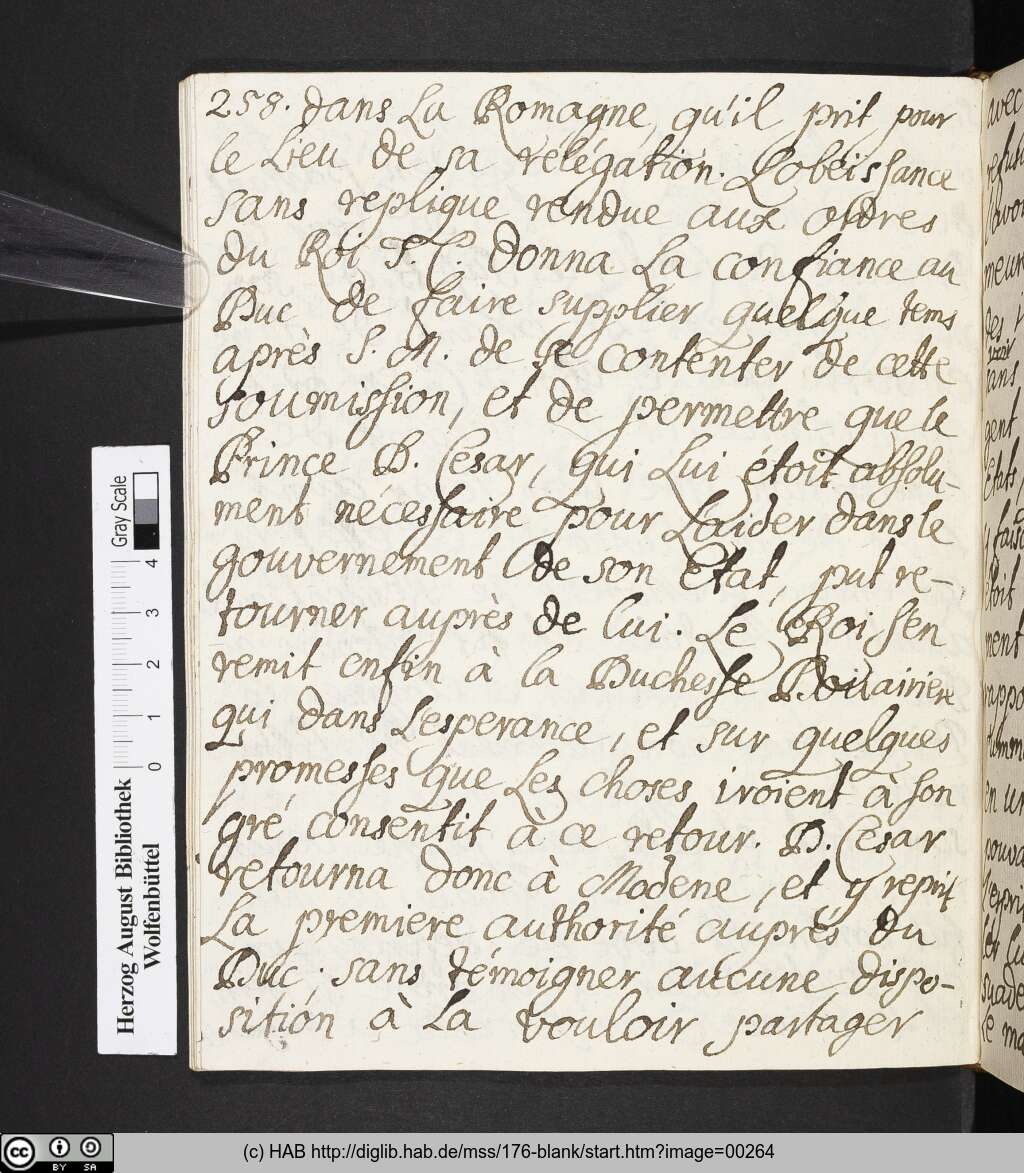 258. dans La Romagne, qu'il prit pour
le Lieu de sa relégation. L'obéissance
sans replique rendue aux ordres
du Roi T. C. donna La confiance au
Duc de faire supplier quelque tems
après S. M. de se contenter de cette
soumission, et de permettre que le
Prince D. Cesar, qui Lui étoit absolu-
ment nécessaire pour L'aider dans le
gouvernement de son Etat, put re-
tourner auprès de lui. Le Roi s'en
remit enfin à la Duchesse Douairiere
qui dans L'esperance, et sur quelques
promesses que Les choses iroient à son
gré consentit à ce retour. D. Cesar
retourna donc à Modene, et y reprit
La premiere authorité auprés du
Duc. sans témoigner aucune dispo-
sition à La vouloir partager
avec
meur
gent
Etats,
ment
Herzog August Bibliothek
Wolfenbüttel
0 1 2 3 4
Gray Scale
cc BY SA
(c) HAB http://diglib.hab.de/mss/176-blank/start.htm?image=00264